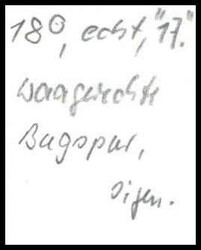 180, echt, "17."
waagerechte
Bugspur,
sigen.